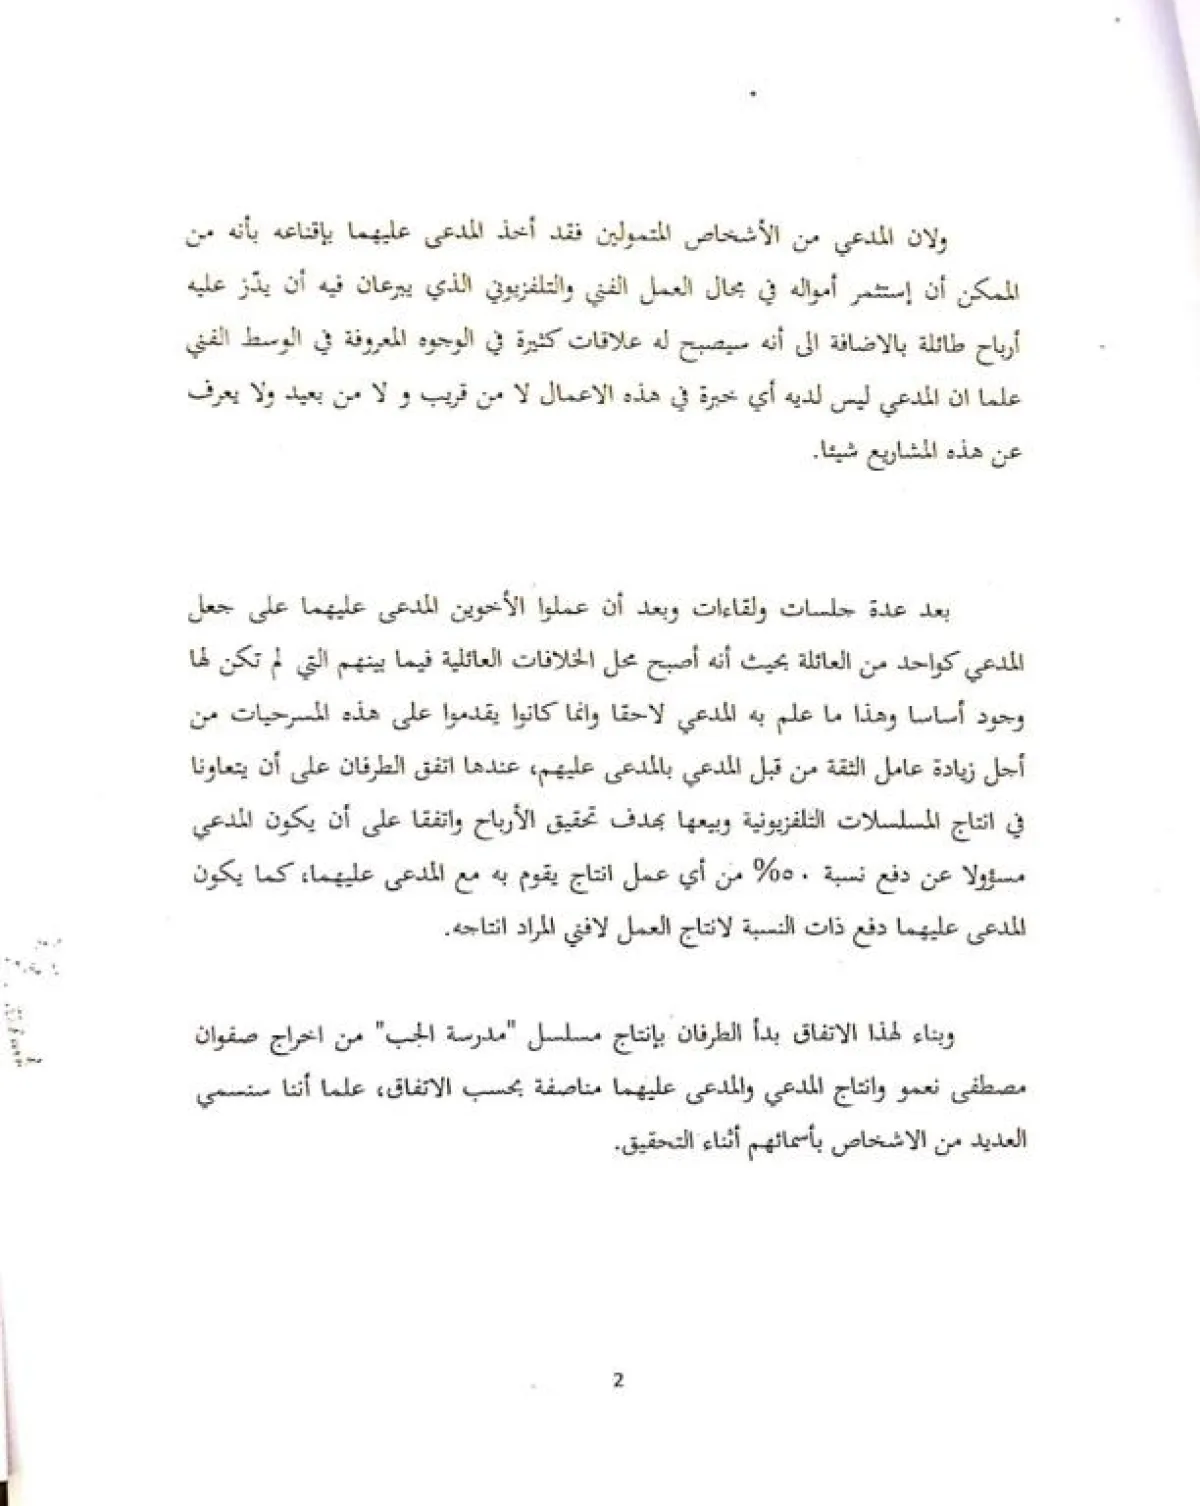 ولان المدعي من الأشخاص المتمولين فقد أخذ المدعى عليهما بإقناعه بأنه من
الممكن أن إستثمر أمواله في مجال العمل الفني والتلفزيوني الذي يبرعان فيه أن يدّر عليه
أرباح طائلة بالاضافة الى أنه سيصبح له علاقات كثيرة في الوجوه المعروفة في الوسط الفني
علما ان المدعي ليس لديه أي خبرة في هذه الاعمال لا من قريب و لا من بعيد ولا يعرف
عن هذه المشاريع شيئا.
بعد عدة جلسات ولقاءات وبعد أن عملوا الأخوين المدعى عليهما على جعل
المدعي كواحد من العائلة بحيث أنه أصبح محل الخلافات العائلية فيما بينهم التي لم تكن لها
وجود أساسا وهذا ما علم به المدعي لاحقا وانما كانوا يقدموا على هذه المسرحيات من
أجل زيادة عامل الثقة من قبل المدعي بالمدعى عليهم، عندها اتفق الطرفان على أن يتعاونا
في انتاج المسلسلات التلفزيونية وبيعها بهدف تحقيق الأرباح واتفقا على أن يكون المدعي
مسؤولا عن دفع نسبة ٥٠% من أي عمل انتاج يقوم به مع المدعى عليهما، كما يكون
المدعى عليهما دفع ذات النسبة لانتاج العمل لافني المراد انتاجه.
وبناء لهذا الاتفاق بدأ الطرفان بإنتاج مسلسل "مدرسة الحب" من اخراج صفوان
مصطفى نعمو وانتاج المدعي والمدعى عليهما مناصفة بحسب الاتفاق، علما أننا سنسمي
العديد من الاشخاص بأسمائهم أثناء التحقيق.
2